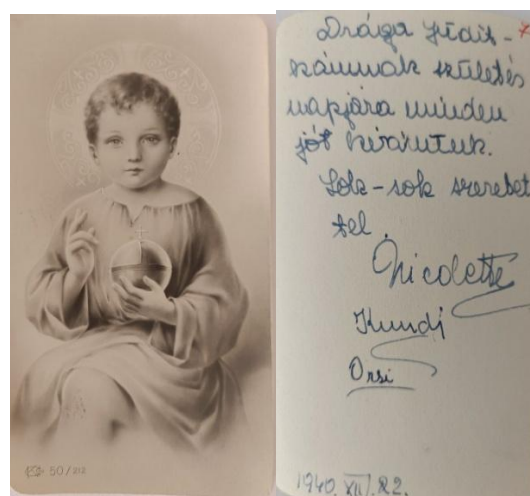 50/212
Drága Judit-
kámnak születés
napjára minden
jót kívánunk.
Sok-sok szeretet
tel
Nicolette
Kundi
Orsi
1940. XII/22.